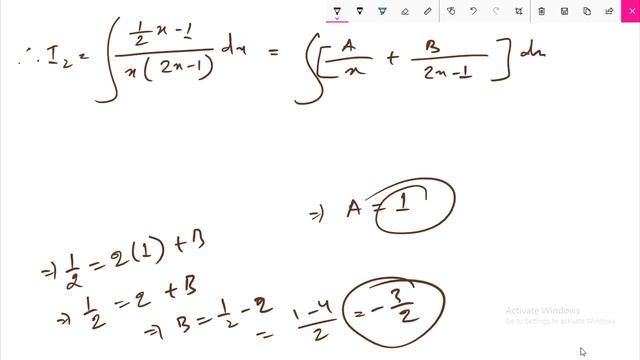 ∴ I₂ = ∫ (½x - 1) / (x(2x-1)) dx = ∫ [A/x + B/(2x-1)] dx
⇒ A = 1
⇒ 1/2 = 2(1) + B
⇒ 1/2 = 2 + B
⇒ B = 1/2 - 2 = (1-4)/2 = -3/2
Activate Windows
Go to Settings to activate Windows.